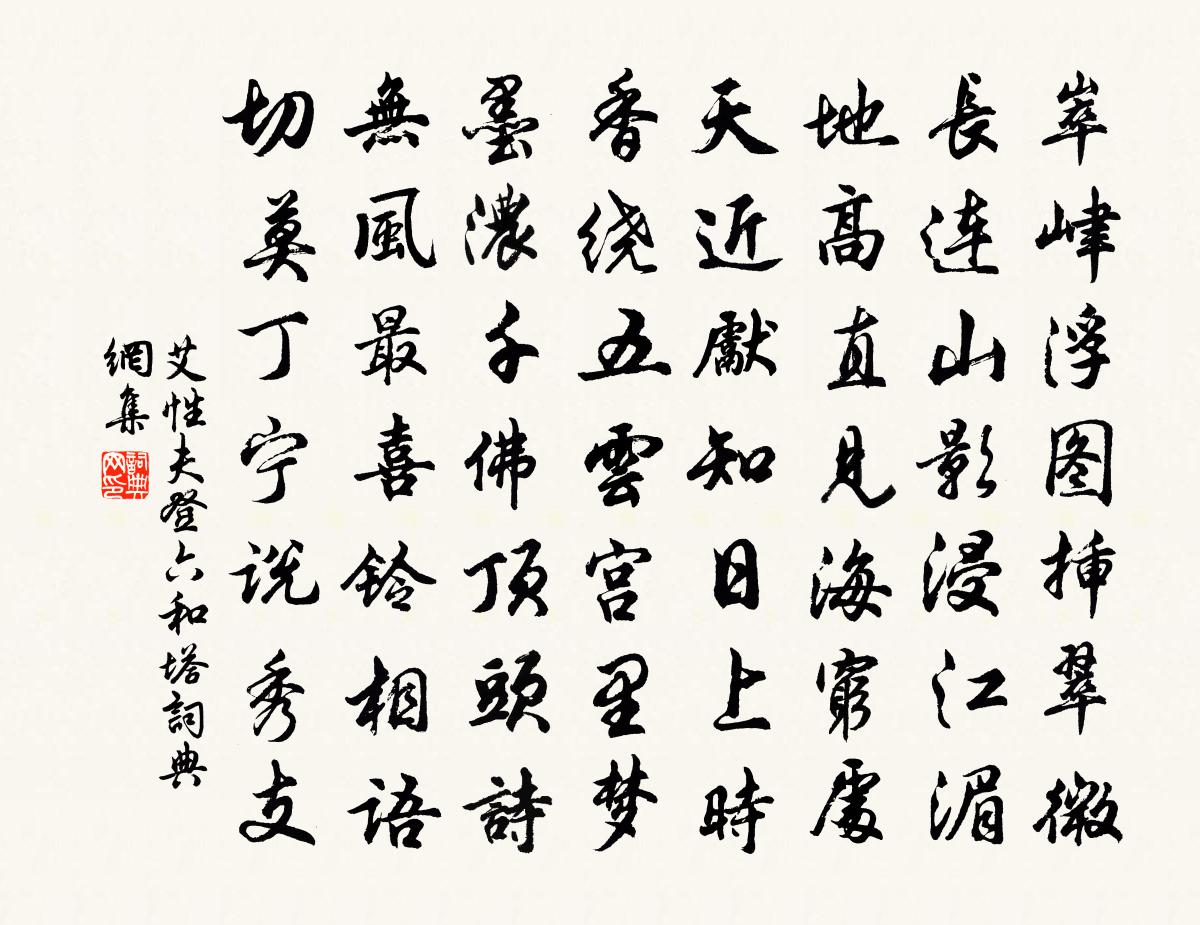 崒嵂浮图揷翠微
長连山影浸江湄
地高直见海窮處
天近獻知日上時
香绕五雲宫里梦
墨濃千佛顶頭詩
無風最喜鈴相語
切莫丁宁说秀支
艾性夫登六和塔詞典
網集
詞典网印